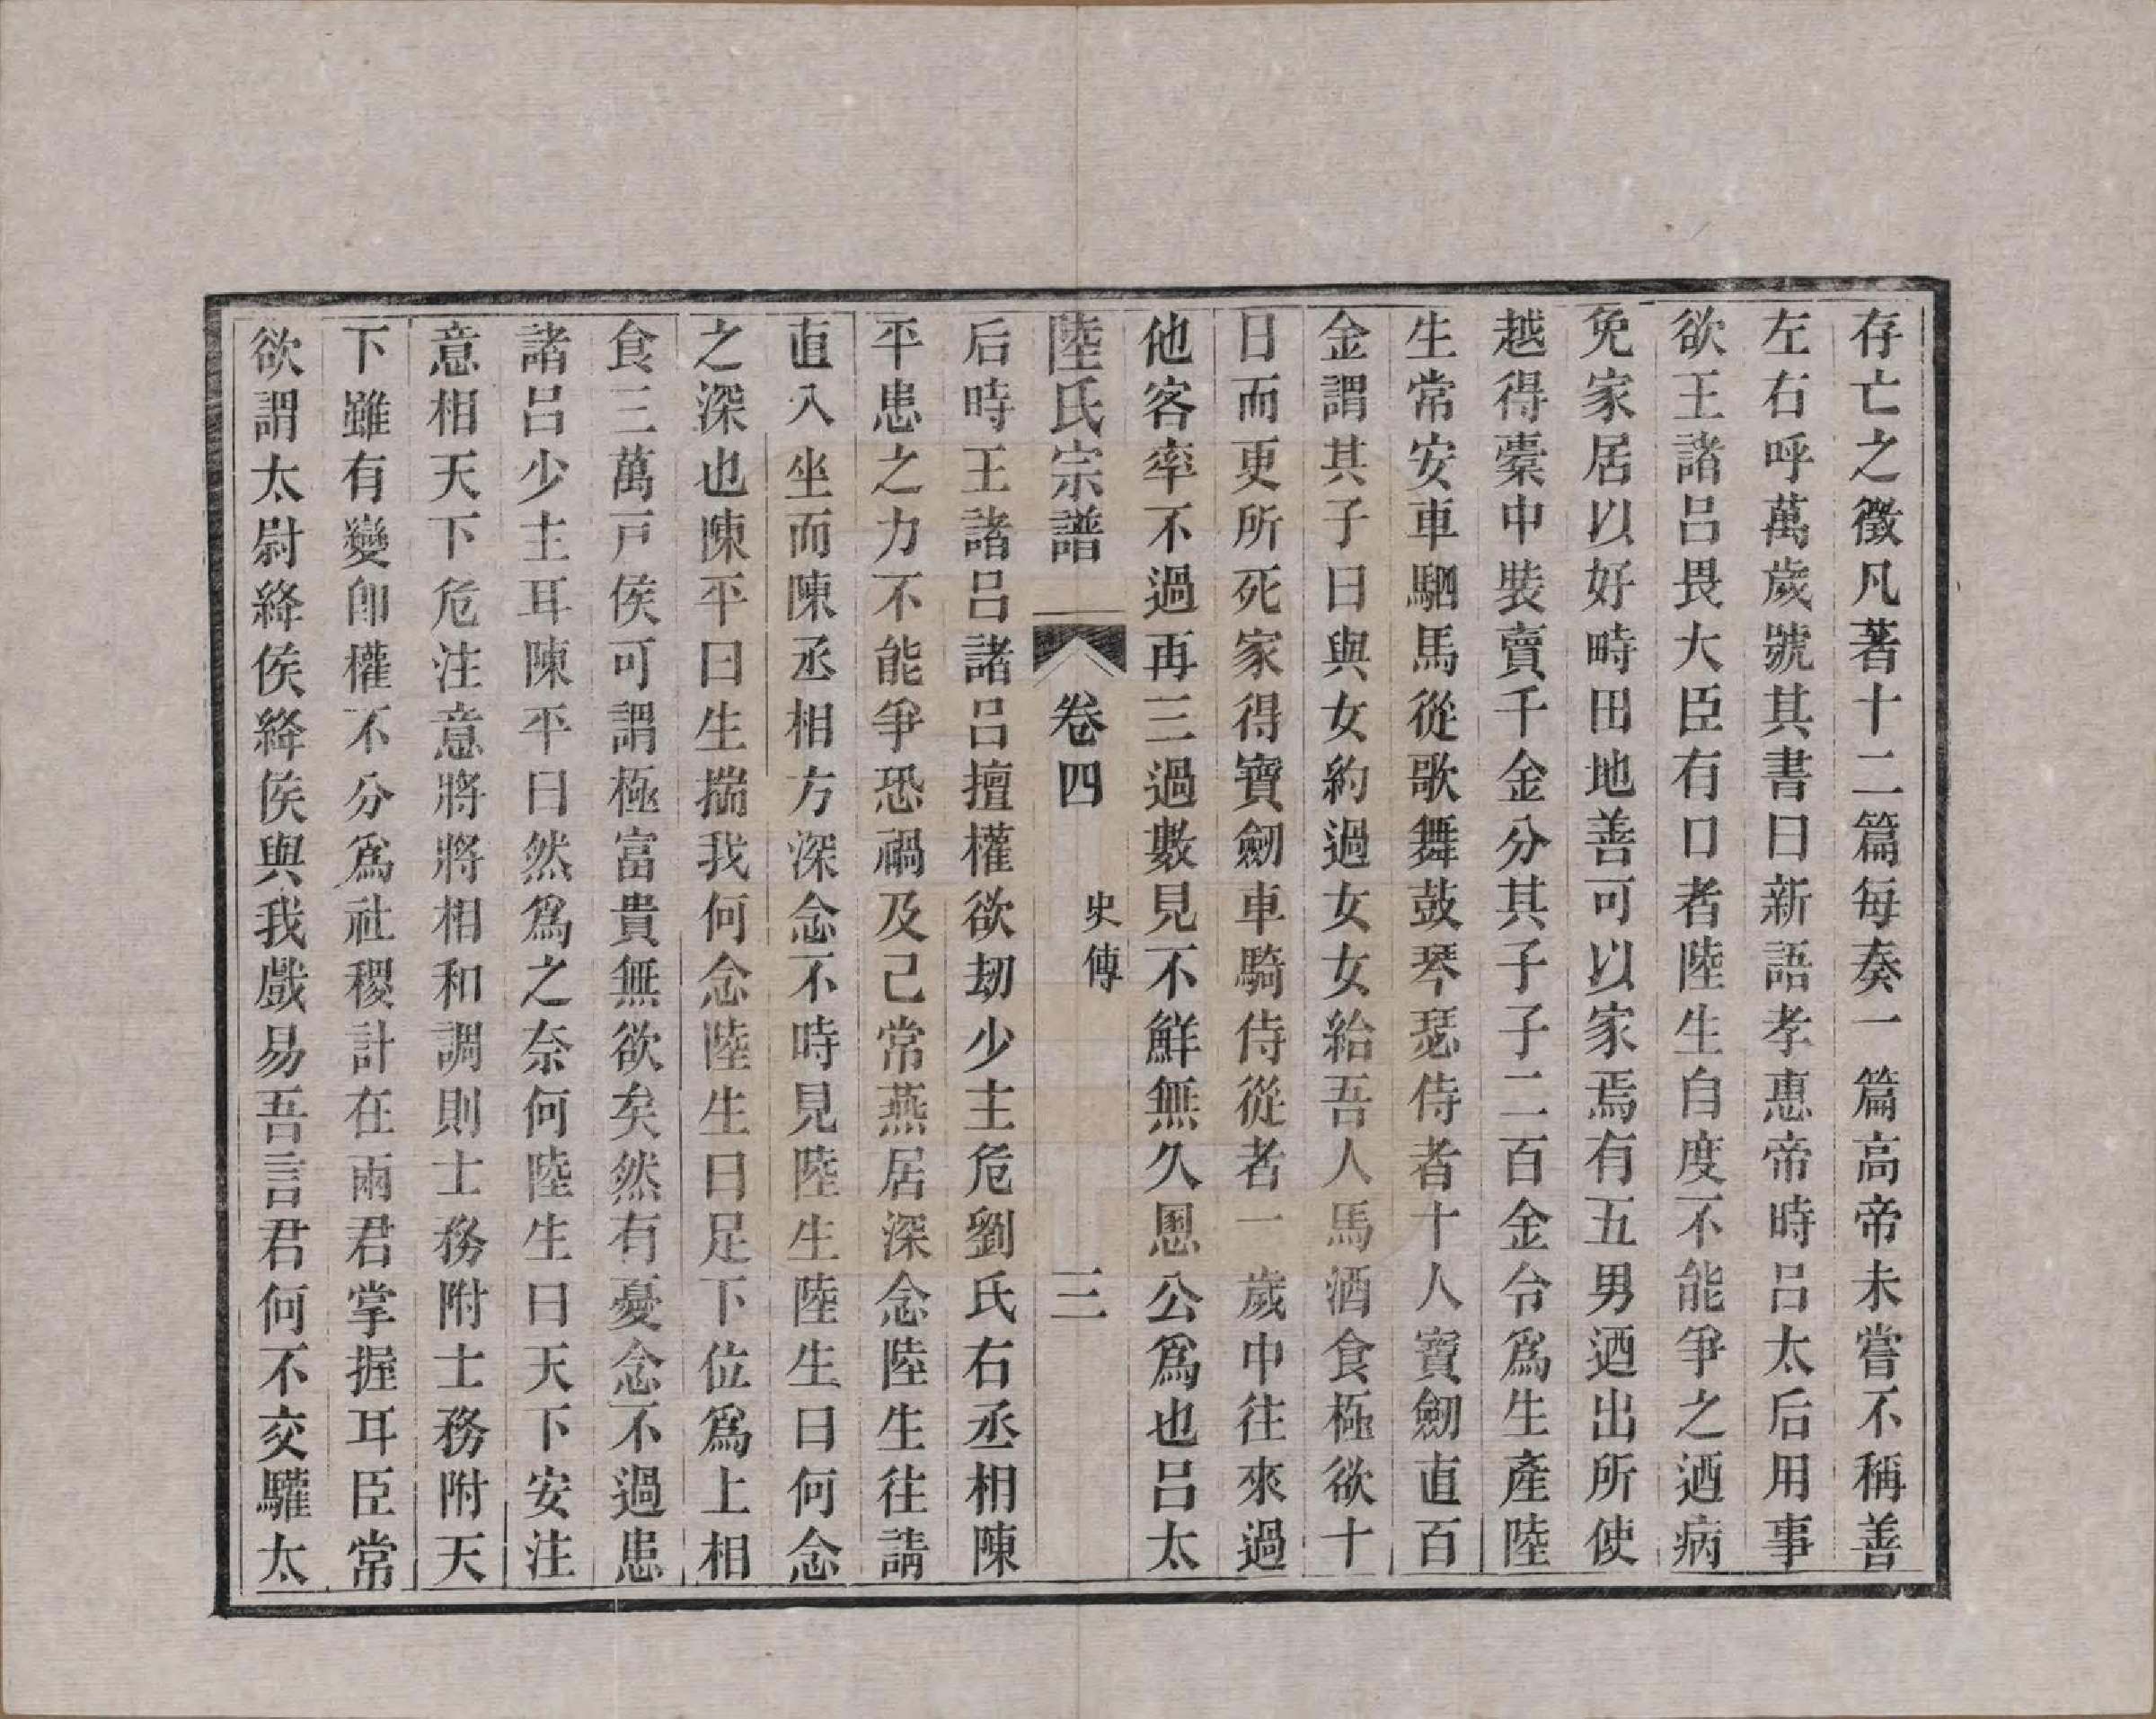 存亡之徵凡著十二篇每奏一篇高帝未嘗不稱善
左右呼萬歲號其書曰新語孝惠帝時呂太后用事
欲王諸呂畏大臣有口者陸生自度不能爭之迺病
免家居以好畤田地善可以家焉有五男迺出所使
越得橐中裝賣千金分其子子二百金令爲生產陸
生常安車駟馬從歌舞鼓琴瑟侍者十人寶劒直百
金謂其子曰與女約過女女給吾人馬酒食極欲十
日而更所死家得寶劒車騎侍從者一歲中往來過
他客率不過再三過數見不鮮無久慁公爲也呂太
陸氏宗譜 卷四 史傳 三
后時王諸呂諸呂擅權欲刼少主危劉氏右丞相陳
平患之力不能爭恐禍及己常燕居深念陸生往請
直入坐而陳丞相方深念不時見陸生陸生曰何念
之深也陳平曰生揣我何念陸生曰足下位爲上相
食三萬戸侯可謂極富貴無欲矣然有憂念不過患
諸呂少主耳陳平曰然爲之奈何陸生曰天下安注
意相天下危注意將將相和調則士務附士務附天
下雖有變卽權不分爲社稷計在兩君掌握耳臣常
欲謂太尉絳侯絳侯與我戲易吾言君何不交驩太